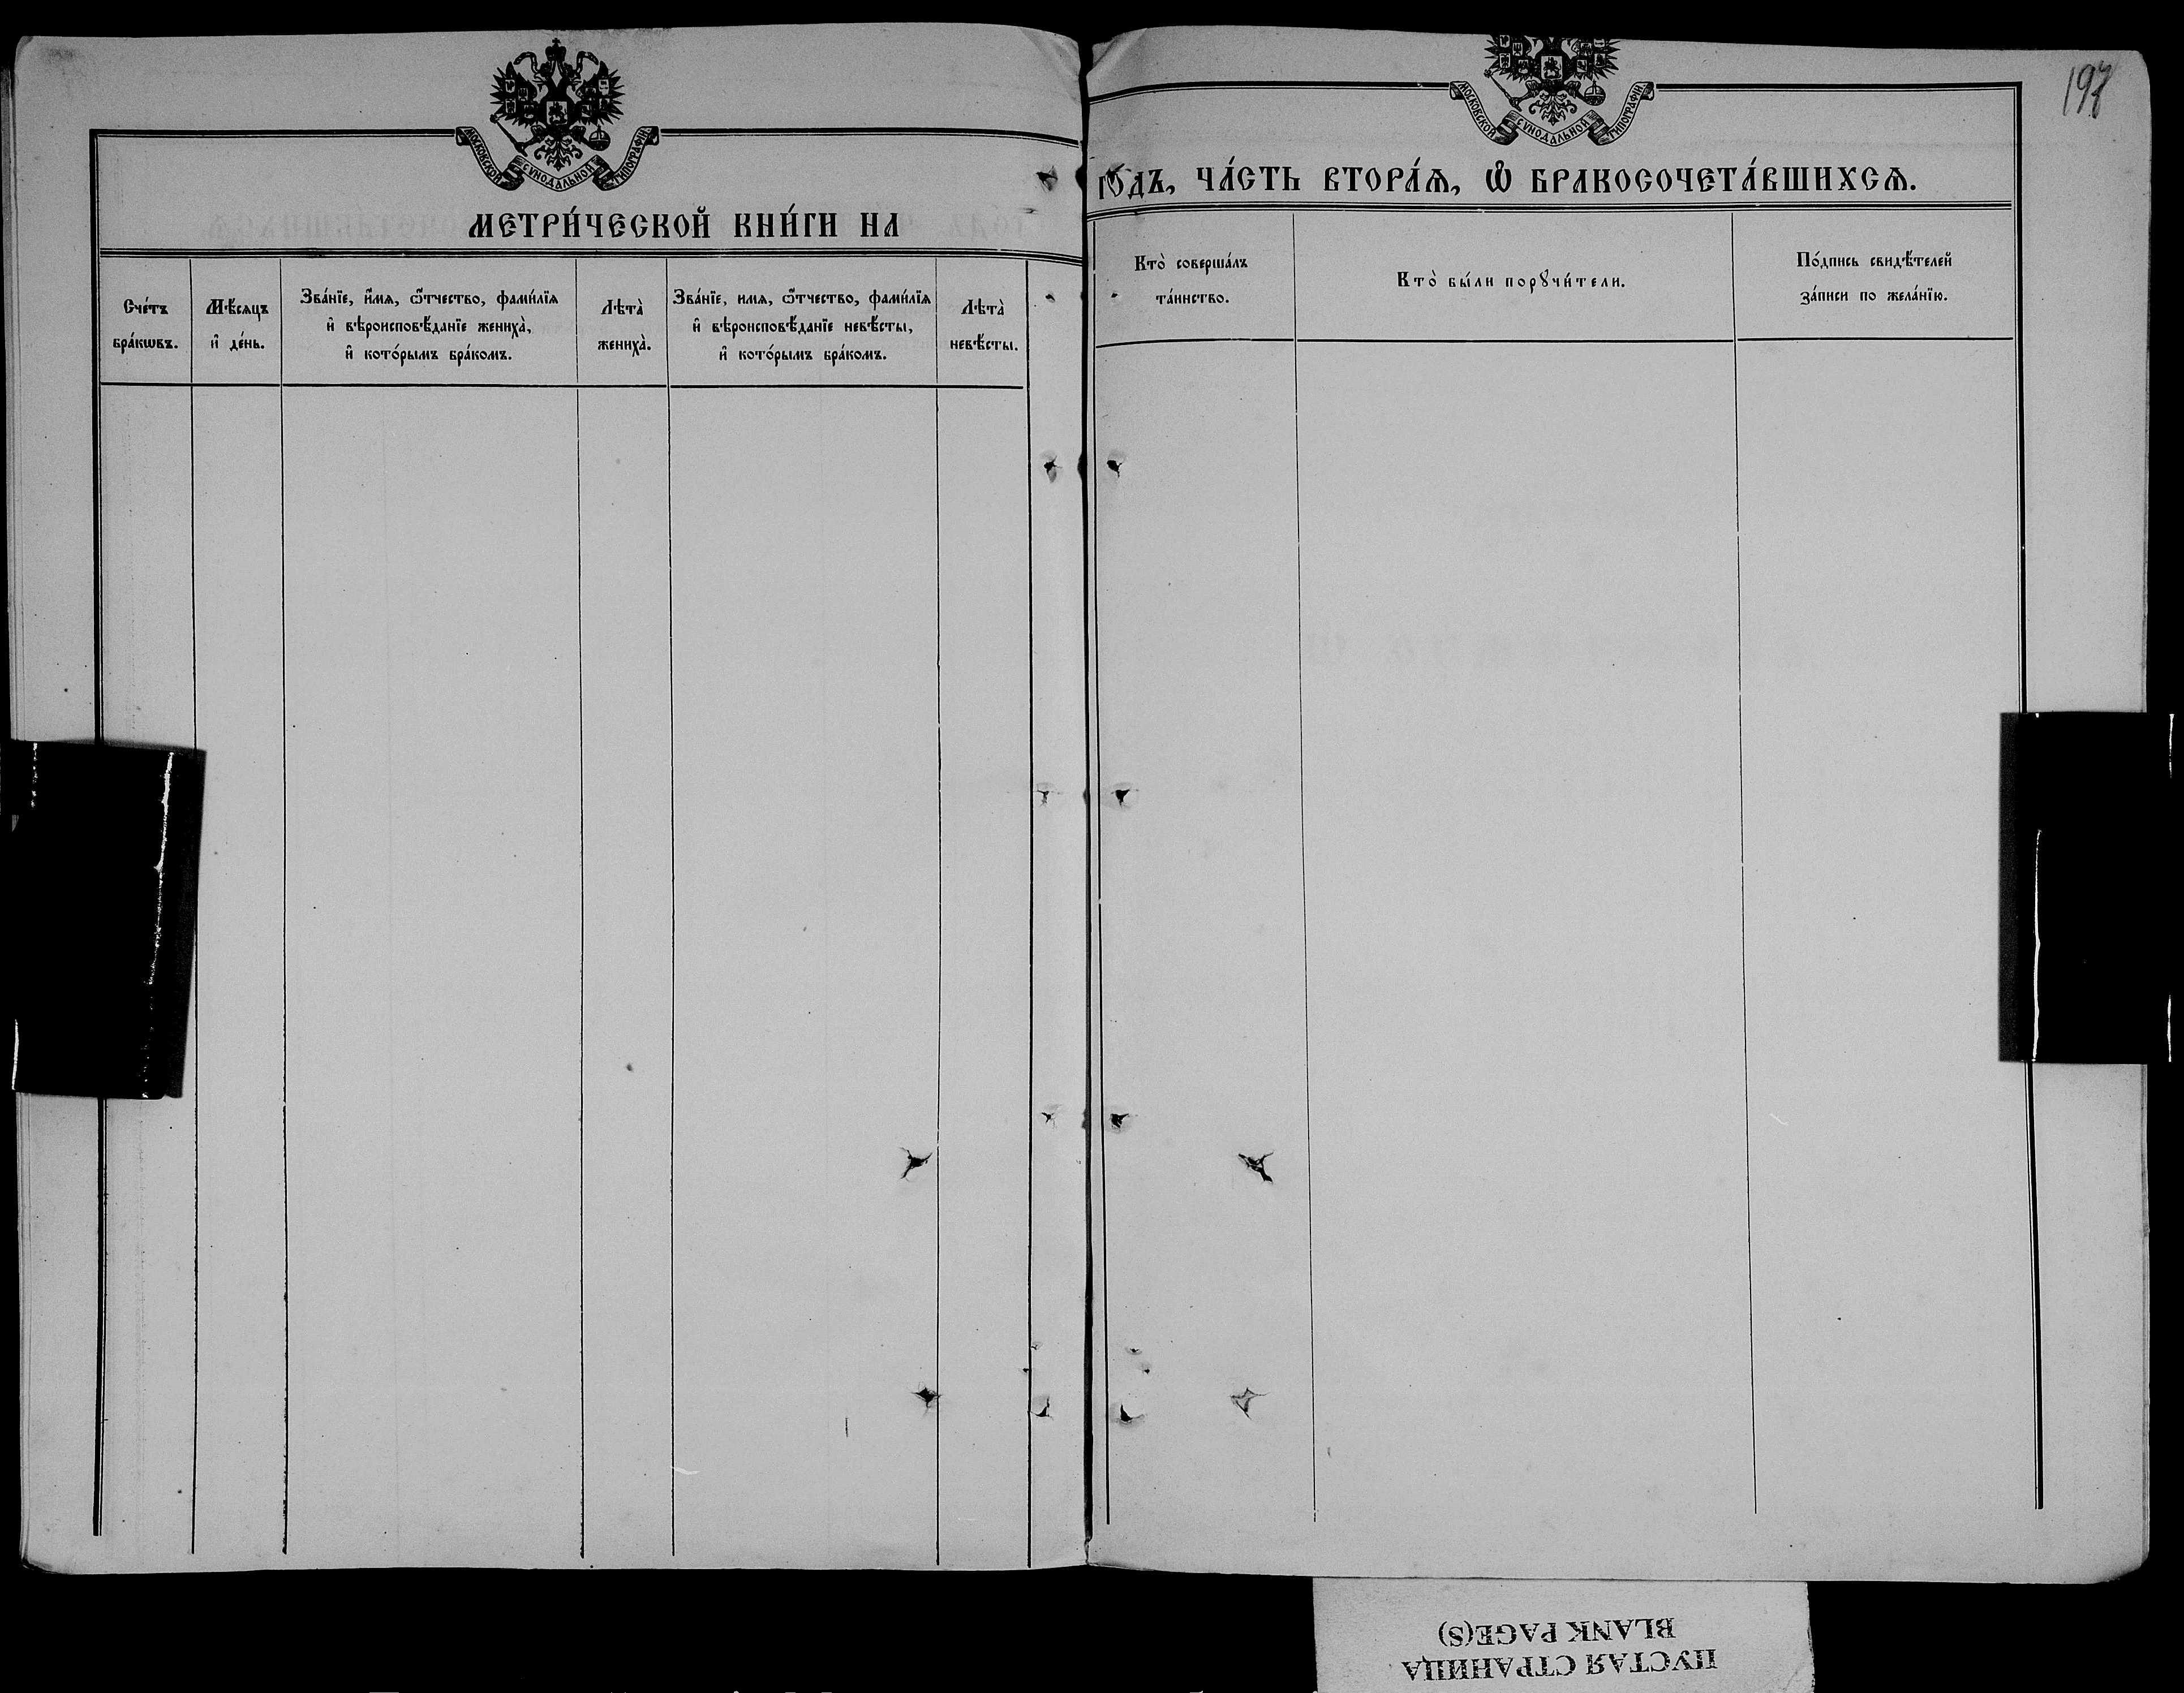 197
МОСКОВСКОЙ СѴНОДАЛЬНОЙ ТИПОГРАФІИ
МЕТРИ́ЧЕСКОЙ КНИ́ГИ НА
Сче́тъ
бра́кωвъ.
Мѣ́сяцъ
и҆ де́нь.
Зва́нїе, и҆́мѧ, ѻ҆́тчество, фами́лїѧ
и҆ вѣроисповѣ́данїе жениха̀,
и҆ кото́рымъ бра́комъ.
Лѣта̀
жениха̀.
Зва́нїе, имѧ, ѻ҆́тчество, фами́лїѧ
и҆ вѣроисповѣ́данїе невѣ́сты,
и҆ кото́рымъ бра́комъ.
Лѣта̀
невѣ́сты.
МОСКОВСКОЙ СѴНОДАЛЬНОЙ ТИПОГРАФІИ
ГО́ДЪ, ЧА́СТЬ ВТОРА́Ѧ, Ѽ БРАКОСОЧЕТА́ВШИХСѦ.
Кто̀ соверша́лъ
та́инство.
Кто̀ бы́ли порꙋчи́тели.
По́дпись свидѣ́телей
за́писи по жела́нїю.
ПУСТАЯ СТРАНИЦА
BLANK PAGE(S)